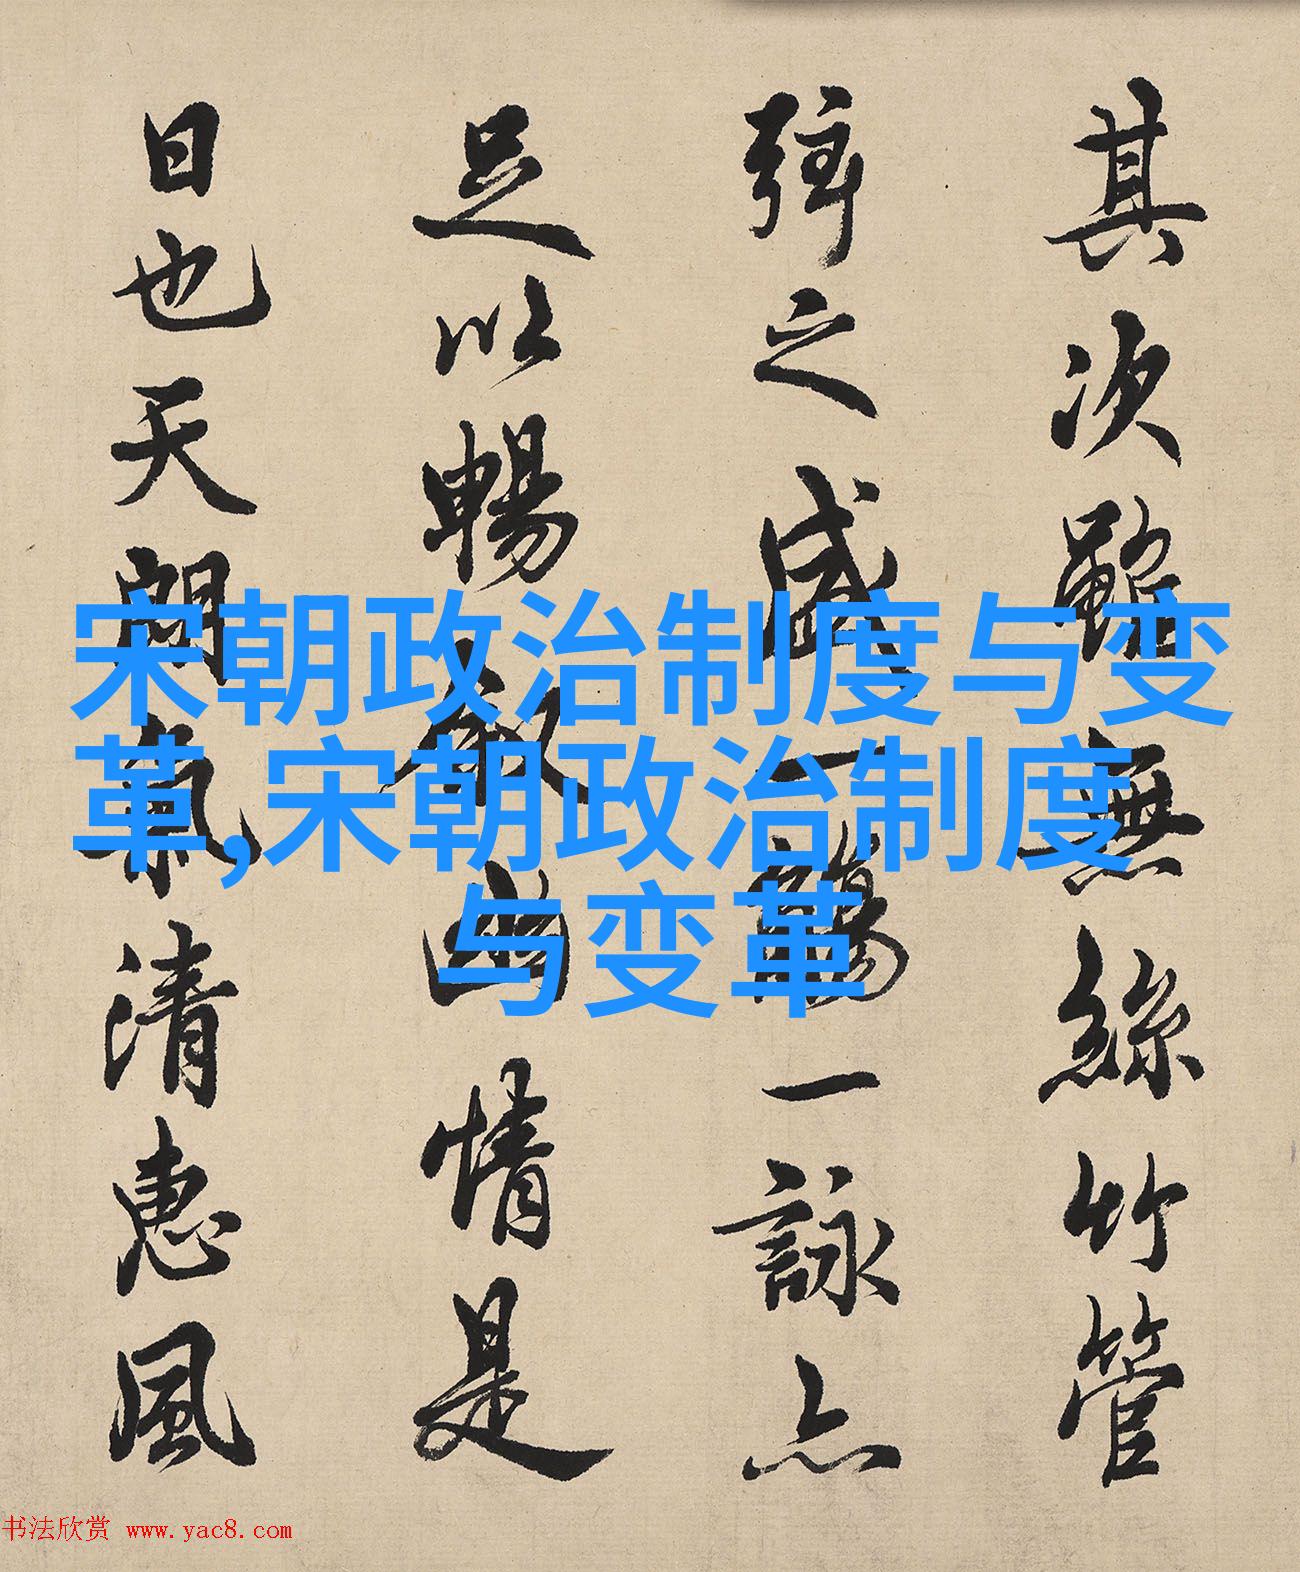 其次雖無絲竹管
弦之盛一觴一詠亦
足以暢敘幽情是
日也天朗氣清惠風
宋朝政治制度与变
革,宋朝政治制度
与变革
书法欣赏 www.yac8.com